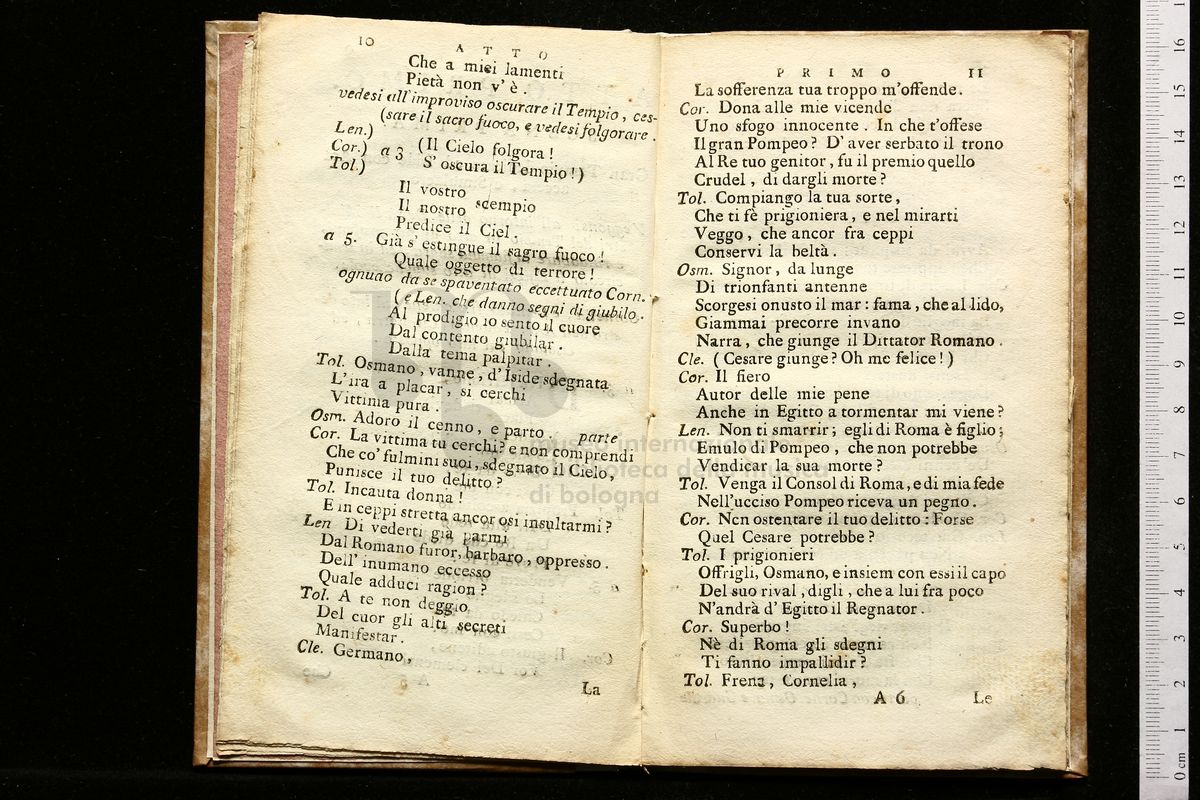 10 ATTO
Che a miei lamenti
Pietà non v'è.
vedesi all'improviso oscurare il Tempio, ces-
(sare il sacro fuoco, e vedesi folgorare.
Len.)
Cor.) a 3 (Il Cielo folgora!
Tol.) S'oscura il Tempio!)
Il vostro
Il nostro scempio
Predice il Ciel,
a 5. Già s'estingue il sagro fuoco!
Quale oggetto di terrore!
ognuao da se spaventato eccettuato Corn.
(e Len. che danno segni di giubilo.
Al prodigio io sento il cuore
Dal contento giubilar.
Dalla tema palpitar.
Tol. Osmano, vanne, d'Iside sdegnata
L'ira a placar, si cerchi
Vittima pura.
Osm. Adoro il cenno, e parto. parte
Cor. La vittima tu cerchi? e non comprendi
Che co' fulmini suoi, sdegnato il Cielo,
Punisce il tuo delitto?
Tol. Incauta donna!
E in ceppi stretta ancor osi insultarmi?
Len Di vederti già parmi
Dal Romano furor, barbaro, oppresso.
Dell'inumano eccesso
Quale adduci ragion?
Tol. A te non deggio
Del cuor gli alti secreti
Manifestar.
Cle. Germano,
La
PRIMO 11
La sofferenza tua troppo m'offende.
Cor. Dona alle mie vicende
Uno sfogo innocente. In che t'offese
Il gran Pompeo? D'aver serbato il trono
Al Re tuo genitor, fu il premio quello
Crudel, di dargli morte?
Tol. Compiango la tua sorte,
Che ti fè prigioniera, e nel mirarti
Veggo, che ancor fra ceppi
Conservi la beltà.
Osm. Signor, da lunge
Di trionfanti antenne
Scorgesi onusto il mar: fama, che al lido,
Giammai precorre invano
Narra, che giunge il Dittator Romano.
Cle. (Cesare giunge? Oh me felice!)
Cor. Il fiero
Autor delle mie pene
Anche in Egitto a tormentar mi viene?
Len. Non ti smarrir; egli di Roma è figlio;
Emulo di Pompeo, che non potrebbe
Vendicar la sua morte?
Tol. Venga il Consol di Roma, e di mia fede
Nell'ucciso Pompeo riceva un pegno.
Cor. Ncn ostentare il tuo delitto: Forse
Quel Cesare potrebbe?
Tol. I prigionieri
Offrigli, Osmano, e insiem con essi il capo
Del suo rival, digli, che a lui fra poco
N'andrà d'Egitto il Regnator.
Cor. Superbo!
Nè di Roma gli sdegni
Ti fanno impallidir?
Tol. Frena, Cornelia,
A 6 Le
museo internazionale
e biblioteca della musica
di bologna
0 cm 1 2 3 4 5 6 7 8 9 10 11 12 13 14 15 16